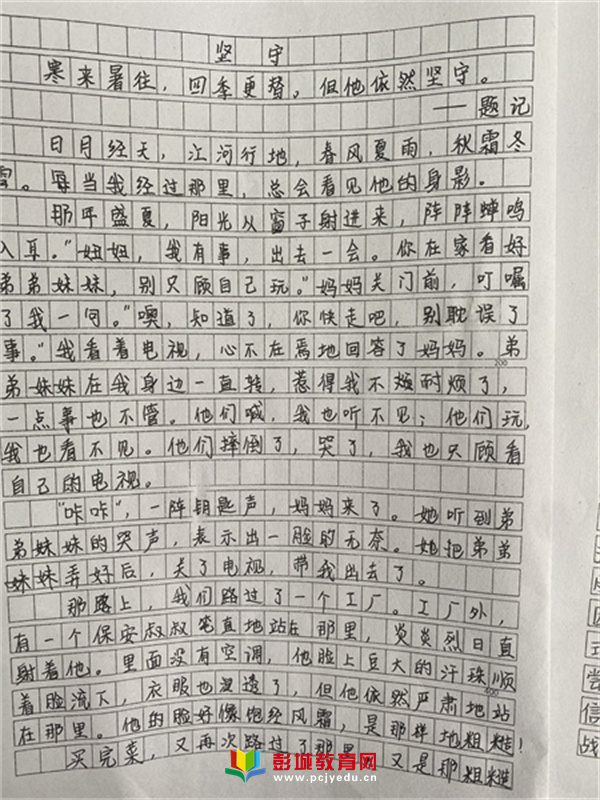 坚守
寒来暑往，四季更替，但他依然坚守。
——题记
日月经天，江河行地，春风夏雨，秋霜冬
雪。每当我经过那里，总会看见他的身影。
那年盛夏，阳光从窗子射进来，阵阵蝉鸣
入耳。“妞妞，我有事，出去一会。你在家看好
弟弟妹妹，别只顾自己玩。”妈妈关门前，叮嘱
了我一句。“噢，知道了，你快走吧，别耽误了
事。”我看着电视，心不在焉地回答了妈妈。弟
200
弟妹妹在我身边一直转，惹得我不烦耐烦了，
一点事也不管。他们喊，我也听不见；他们玩，
我也看不见。他们摔倒了，哭了，我也只顾看
自己的电视。
“咔咔”，一阵钥匙声，妈妈来了。她听到弟
弟妹妹的哭声，表示出一脸的无奈。她把弟弟
妹妹弄好后，关了电视，带我出去了。
那路上，我们路过了一个工厂。工厂外，
有一个保安叔叔笔直地站在那里，炎炎烈日直
射着他。里面没有空调，他脸上豆大的汗珠顺
着脸流下，衣服也浸透了，但他依然严肃地站
400
在那里。他的脸好像饱经风霜，是那样地粗糙！
买完菜，又再次路过了那里，又是那粗糙
彭城教育网
www.pcjyedu.cn
信
战